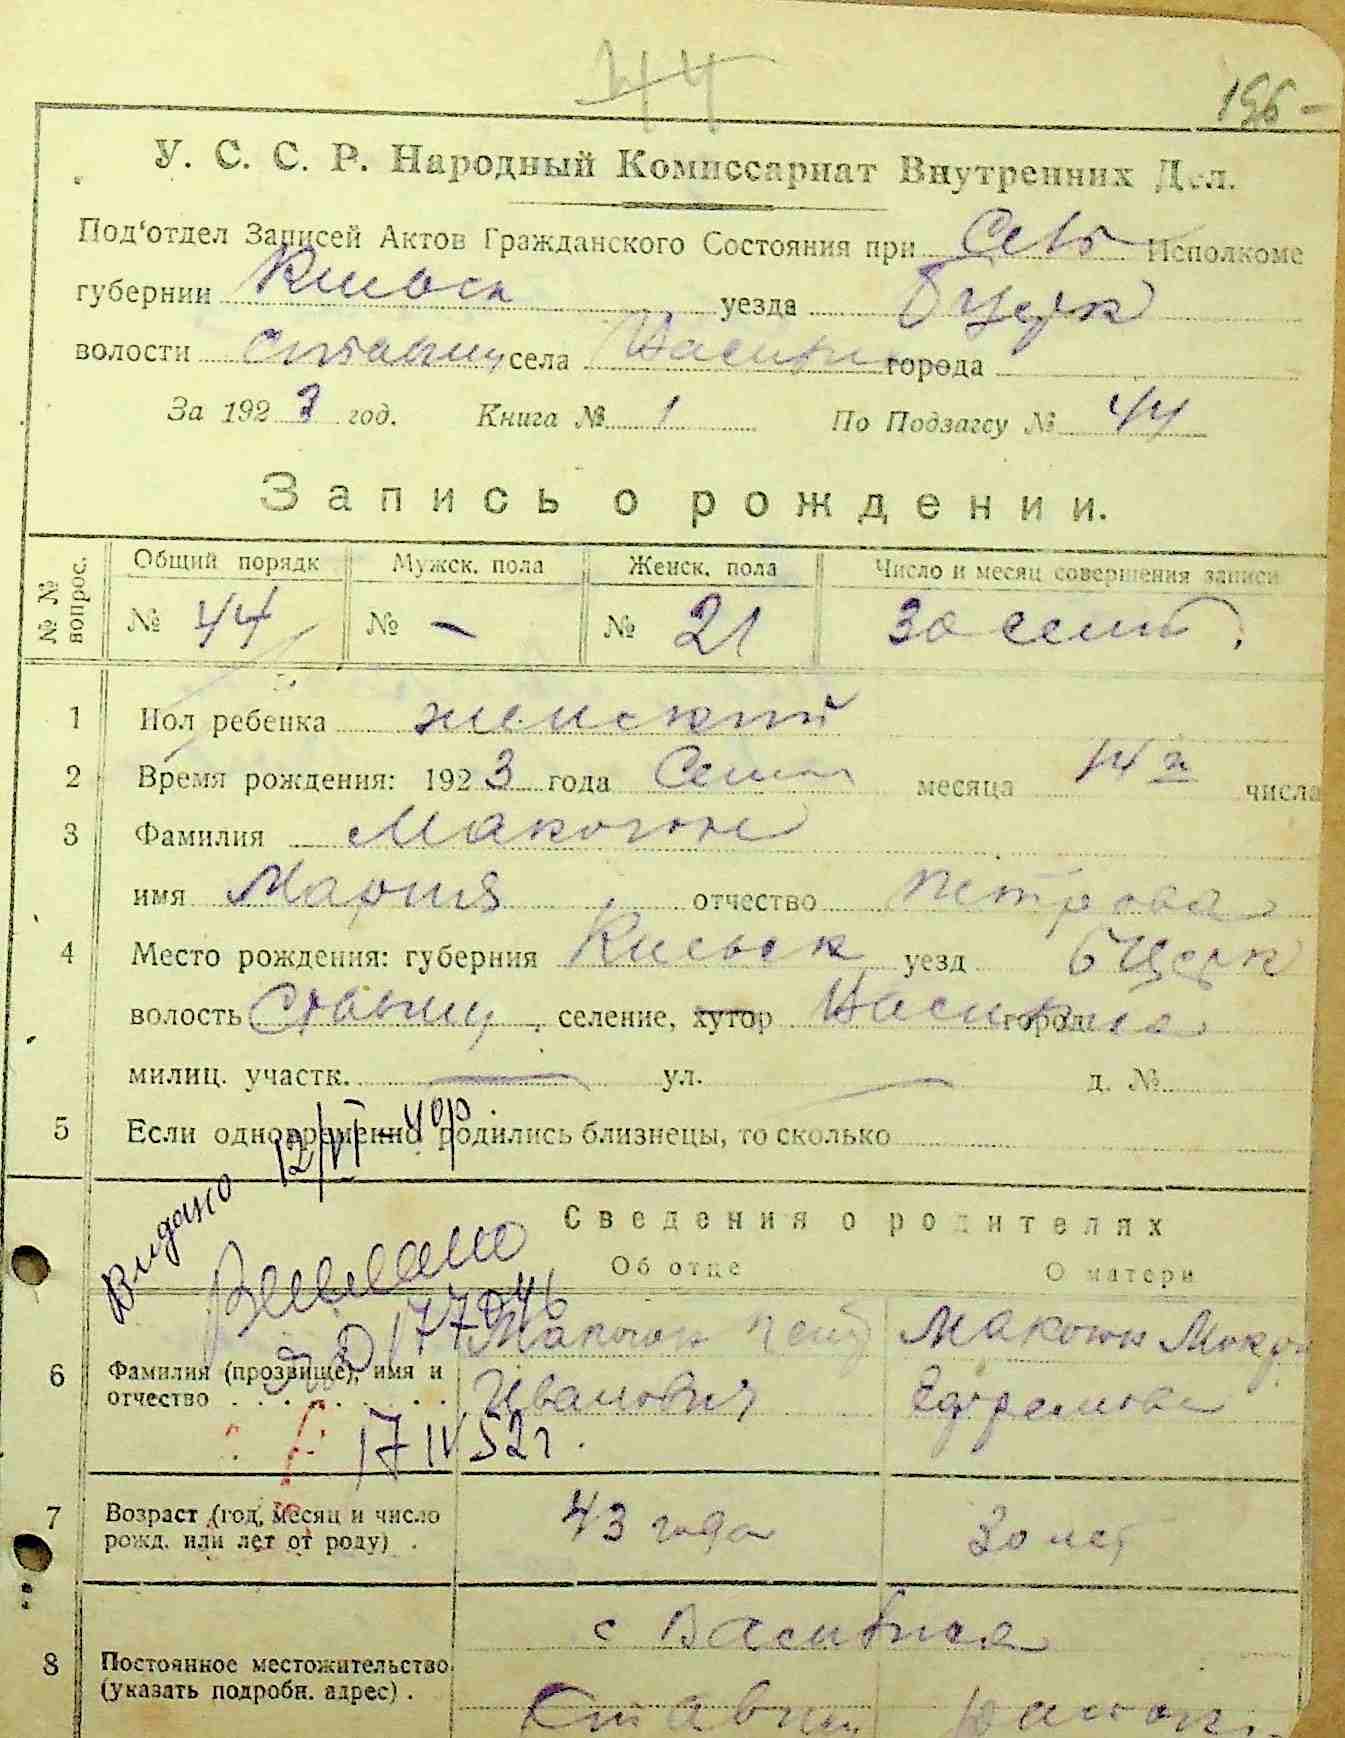 44
196-
У. С. С. Р. Народный Комиссариат Внутренних Дел.
Под'отдел Записей Актов Гражданского Состояния при Исполкоме
губернии Киевск уезда БЦерк
волости Ставищ села города
За 1923 год. Книга № 1 По Подзагсу № 44
Запись о рождении.
№ № вопрос. Общий порядк Мужск. пола Женск. пола Число и месяц совершения записи
№ 44 № - № 21 30 сент.
1 Пол ребенка женский
2 Время рождения: 1923 года месяца 14 числа
3 Фамилия Макогон
имя Мария отчество Петрова
4 Место рождения: губерния Киевск уезд БЦерк
волость Ставищ, селение, хутор город
милиц. участк. ул. д. №
5 Если одновременно родились близнецы, то сколько
Видано 12/VI-40р
Сведения о родителях
Об отце О матери
6 Фамилия (прозвище), имя и отчество
Макогон Макогон
Иванович Ефремова
17 IV 52г.
7 Возраст (год, месяц и число рожд. или лет от роду) 43 года 30 лет
8 Постоянное местожительство (указать подробн. адрес)
с
Ставищ район